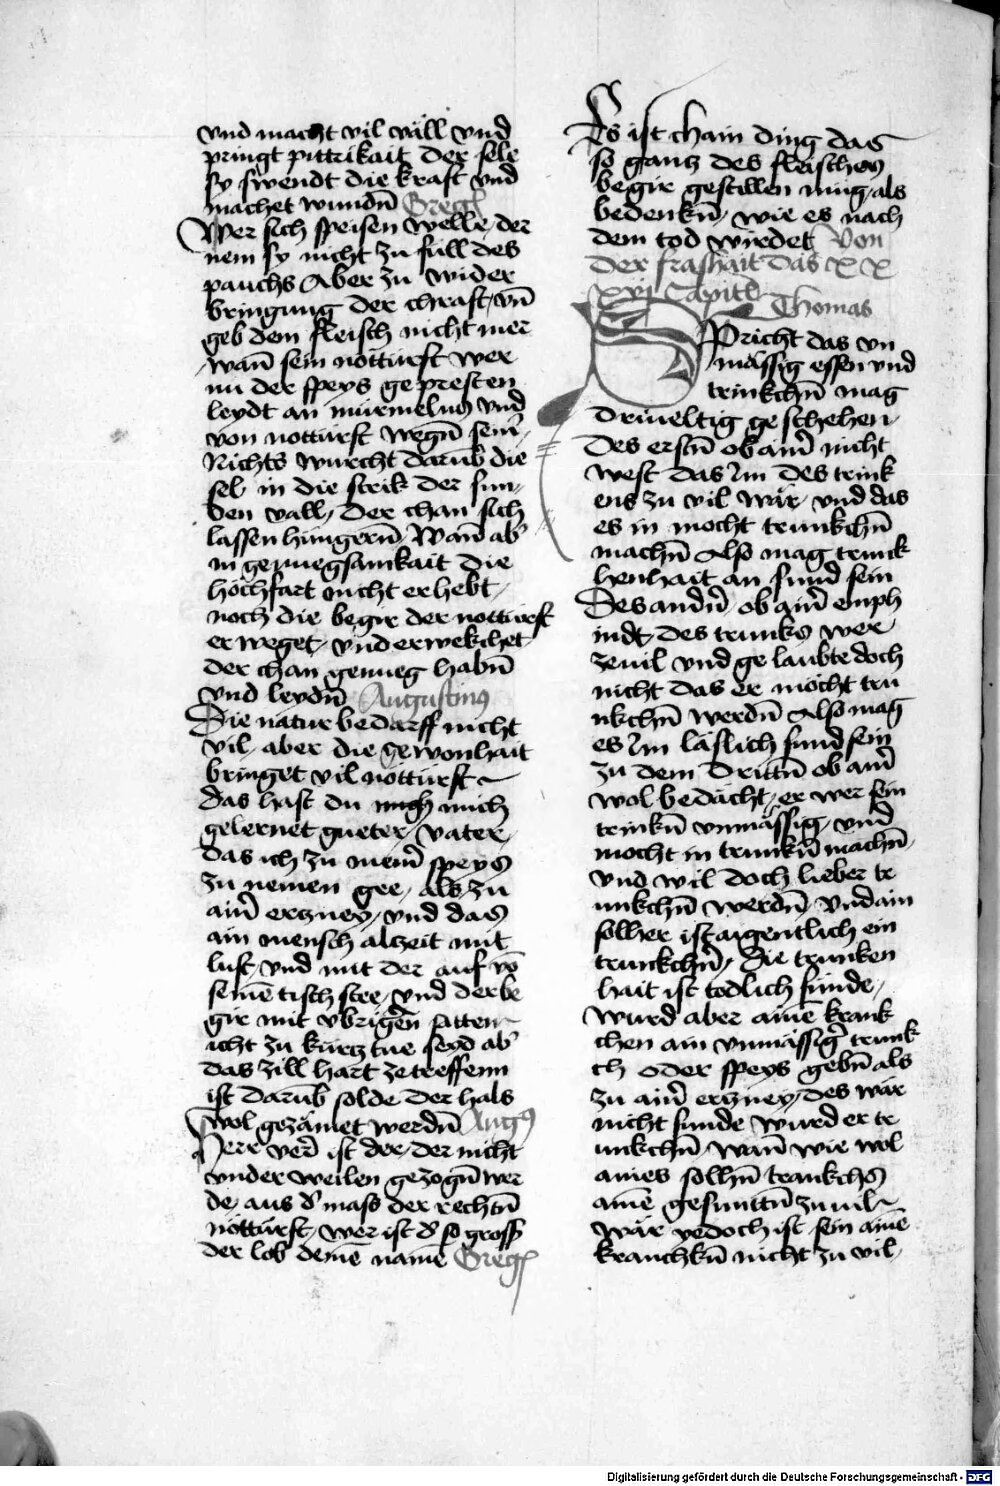 vnd macht vil väll vnd
pringt pittrikait der sele
sy swendt die kraft vnd
machet wundn̄ Greg̉
Wer sich speisen welle, der
nem sy nicht zu füll des
pauchs Aber zu wider
bringung der chraft, vn̄
geb dem fleisch nicht mer
wan̄ sein notturft wer
nu der speys gepresten
leydt an murmelug vnd
von notturft wegn̄ sein̄,
Nichts wurcht darūb die
sel in die strik der sun,
den vall, der chan sich
lassen hungern̄, Wan̄ ab̉
in genuegsamkait die
höchfart nicht erhebt,
noch die begir der notturft
erweget, vnd erwekchet
der chan genueg habn̄
vnd leydn̄ Augustinus
Die natur bedarff nicht
vil, aber die gewonhait
bringet vil notturft
das hast du mich
gelernet gueter, vater,
das ich zu mein̄ speys
zu nemen gee, als zu
ain̄ erczney, vnd das
ain mensch alczeit mit
lust, vnd mit der auf vō
seinē tisch stee, vnd der be
gir mit vbrigen̄ satten
icht zu kurcz tue seyd ab̉
das zill hart ze treffenn
ist darūb solde der hals
wol gezämet werdn̄ Aug9
Herr ver̄ ist der, der nicht
vnder weilen gezogn̄ wer
de, aus d̉ mass der rechtn̄
notturft, wer ist d̉ so gross
der lob deinē namē Greg̉
Es ist chain ding das
so gancz des fleisches
begir gestillen mug, als
bedenkn̄, wie es nach
dem tod wirdet Von
der frashait das x x
xvj Capitel Thomas
Spricht das vn
mässig essen vnd
trinkchn̄ mag
driueltig geschehen,
Des erstn̄ ob ain̄ nicht
west das Im des trink
ens zu vil wär, vnd das
es in mocht trunkchn̄
machn̄ Also mag trunck
henhait an sund sein
Des andn̄, ob ain̄ emph
indt, des trunks wer
zeuil vnd gelaubte doch
nicht das er möcht tru
nkchn̄ werdn̄ Also mag
es Im läslich sund sein
zu dem drittn̄ ob ain̄
wol bedächt, er wer sein
trinkn̄ vnmässig, vnd
mocht in trunkn̄ machn̄,
vnd wil doch lieber tr
unkchn̄ werdn̄, vnd ain
sölher ist aigentlich ein
trunkchn̄, die trunken
hait ist todlich sünde,
Wurd aber ainē krank
chen ain vnmässig̉ trunk
ch oder speys gebn̄ als
zu ain̄ erczney, des wär
nicht sunde wurd er tr
unkchn̄, wan̄ wie wol
aines solhn̄ trankchs
ainē gesuntn̄ zu uil
wär yedoch ist sein ainē
kranchkn̄ nicht zu vil,
Digitalisierung gefördert durch die Deutsche Forschungsgemeinschaft - DFG